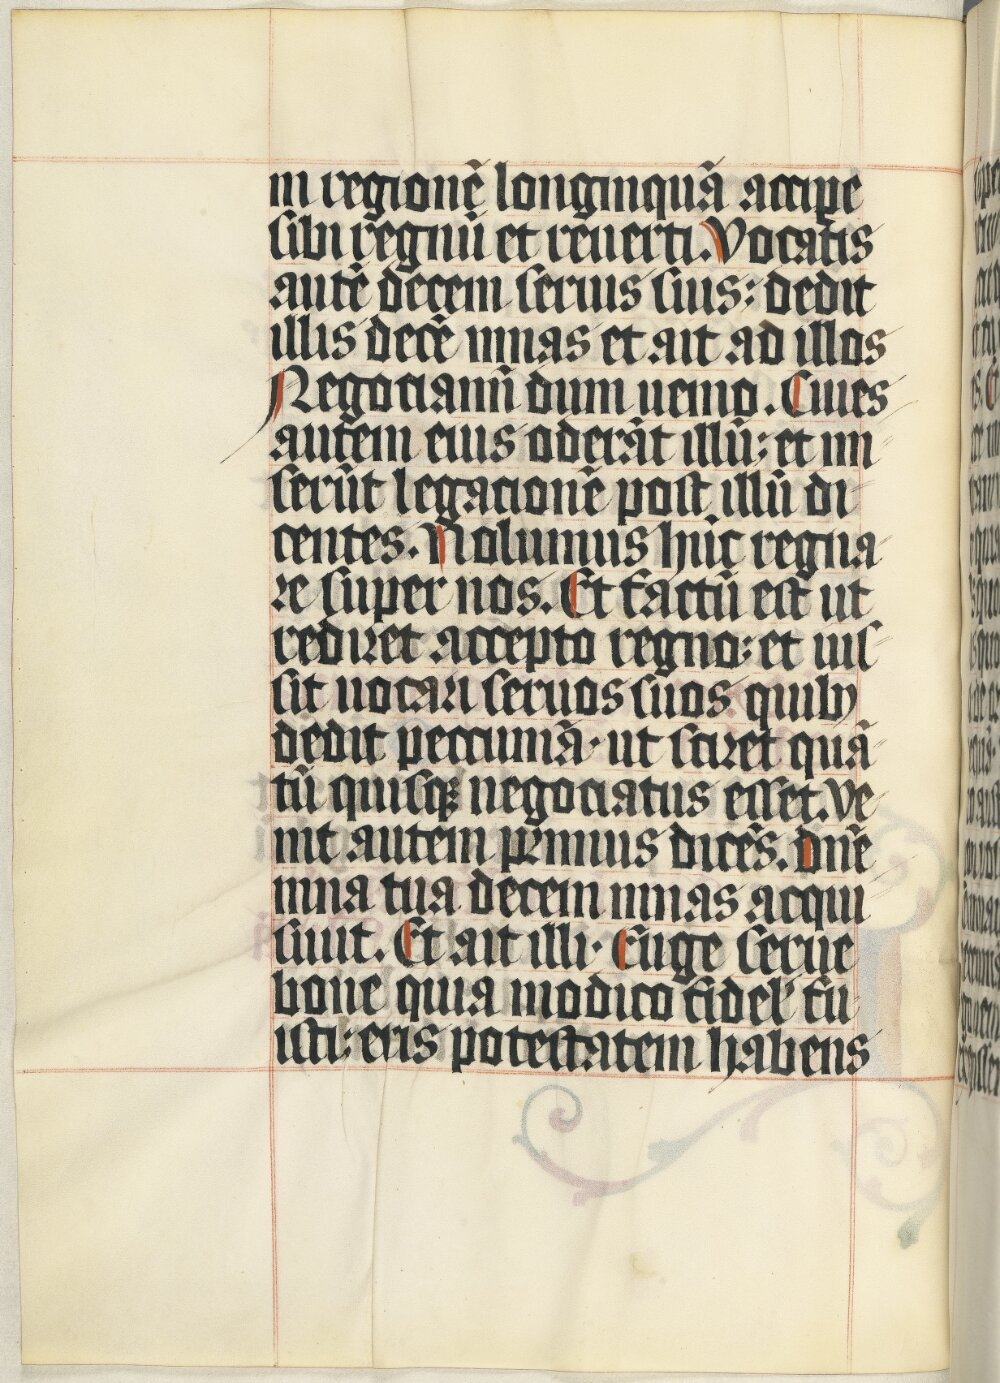 in regionē longinquā accipe
sibi regnū et reuerti. Vocatis
autē decem seruis suis: dedit
illis decē mnas et ait ad illos
Negociamī dum uenio. Ciues
autem eius oderāt illū; et mi
serūt legacionē post illū di
centes. Nolumus huīc regna
re super nos. Et factū est ut
rediret accepto regno: et ius
sit uocari seruos suos quibꝫ
dedit peccuniā· ut sciret quā
tū quisqꝫ negociatus esset. Ve
nit autem primus dicēs. Dn̄e
mna tua decem mnas acqui
siuit. Et ait illi· Euge serue
bone quia modico fidel' fu
isti; eris potestatem habens